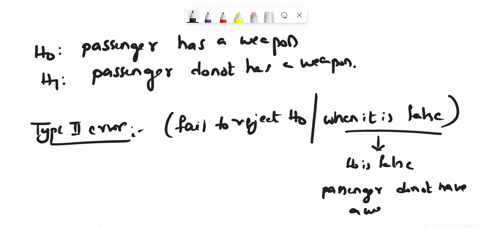 H0: passenger has a weapon
H1: passenger donot has a weapon.
Type II error:- (fail to reject H0 | when it is false)
H0 is false
passenger donot have
a we